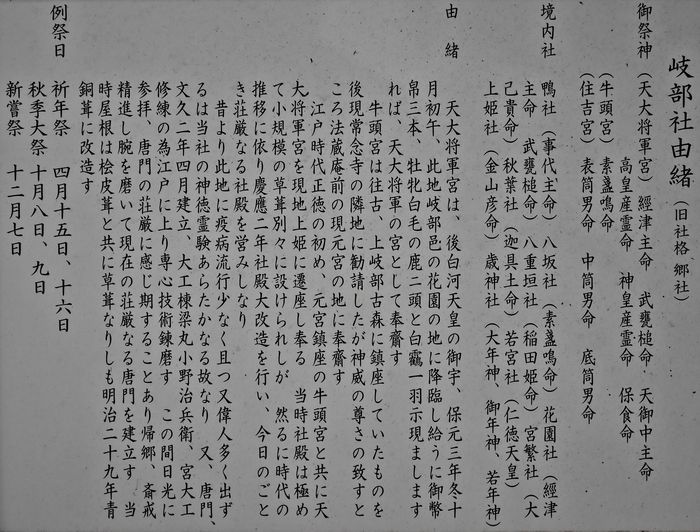 岐部社由緒（旧社格 郷社）
御祭神（天大将軍宮）經津主命 武甕槌命 天御中主命
高皇産霊命 神皇産霊命 保食命
（牛頭宮）素盞鳴命
（住吉宮）表筒男命 中筒男命 底筒男命
境内社 鴨社（事代主命）八坂社（素盞鳴命）花園社（經津
主命 武甕槌命）八重垣社（稲田姫命）宮繁社（大
己貴命）秋葉社（迦具土命）若宮社（仁徳天皇）
上姫社（金山彦命）歳神社（大年神、御年神、若年神）
由緒 天大将軍宮は、後白河天皇の御宇、保元三年冬十
月初午、此地岐部邑の花園の地に降臨し給うに御幣
帛三本、牡牝白毛の鹿二頭と白鷴一羽示現まします
れば、天大将軍の宮として奉齋す
牛頭宮は往古、上岐部古森に鎮座していたものを
後現常念寺の隣地に勧請したが神威の尊さの致すと
ころ法蔵庵前の現元宮の地に奉齋す
江戸時代正徳の初め、元宮鎮座の牛頭宮と共に天
大将軍宮を現地上姫に遷座し奉る 当時社殿は極め
て小規模の草葺別々に設けられしが 然るに時代の
推移に依り慶應二年社殿大改造を行い、今日のごと
き荘厳なる社殿を営みしなり
昔より此地に疫病流行少なく且つ又偉人多く出ず
るは当社の神徳霊験あらたかなる故なり 又、唐門、
文久二年四月建立、大工棟梁丸小野治兵衛、宮大工
修練の為江戸に上り専心技術錬磨す この間日光に
参拝、唐門の荘厳に感じ期することあり帰郷、斎戒
精進し腕を磨いて現在の荘厳なる唐門を建立す 当
時屋根は桧皮葺と共に草葺なりしも明治二十九年青
銅葺に改造す
例祭日 祈年祭 四月十五日、十六日
秋季大祭 十月八日、九日
新嘗祭 十二月七日